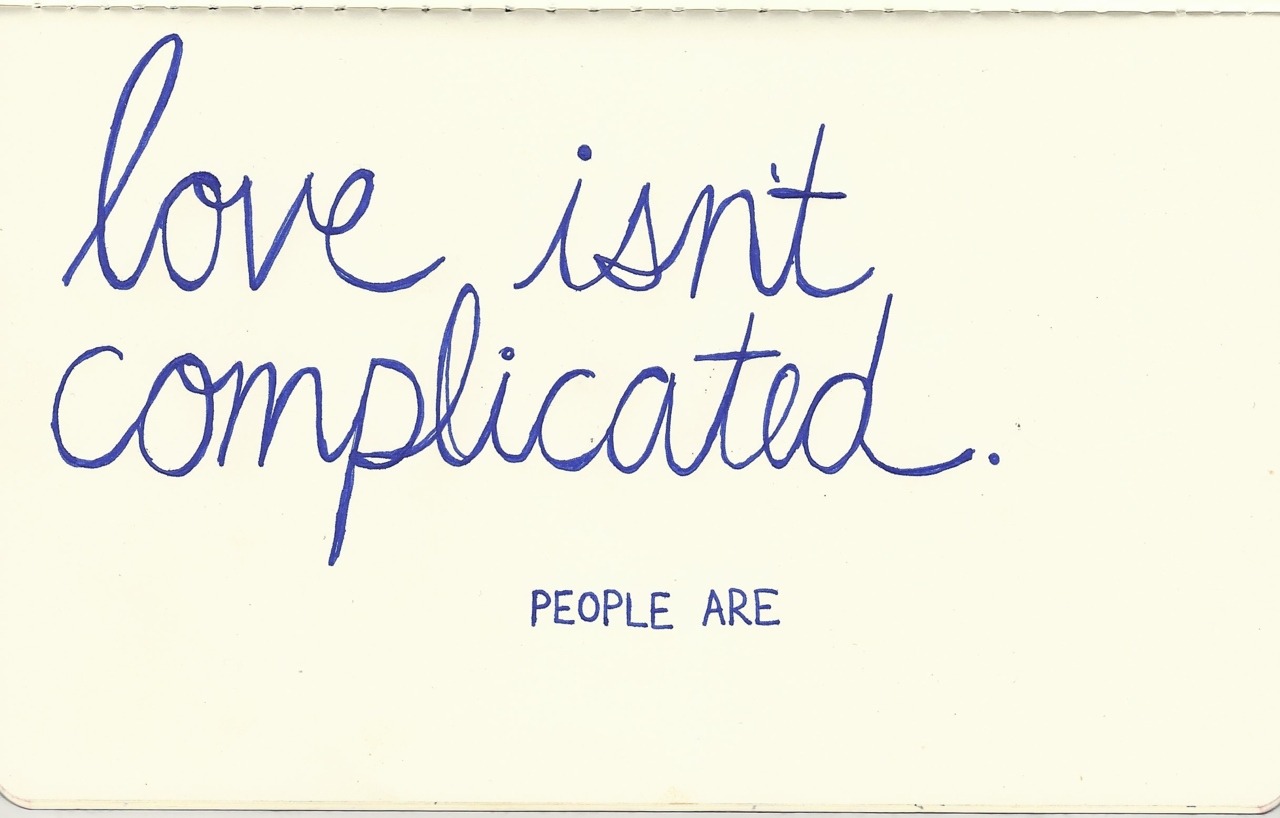 love isn't
complicated.
PEOPLE ARE